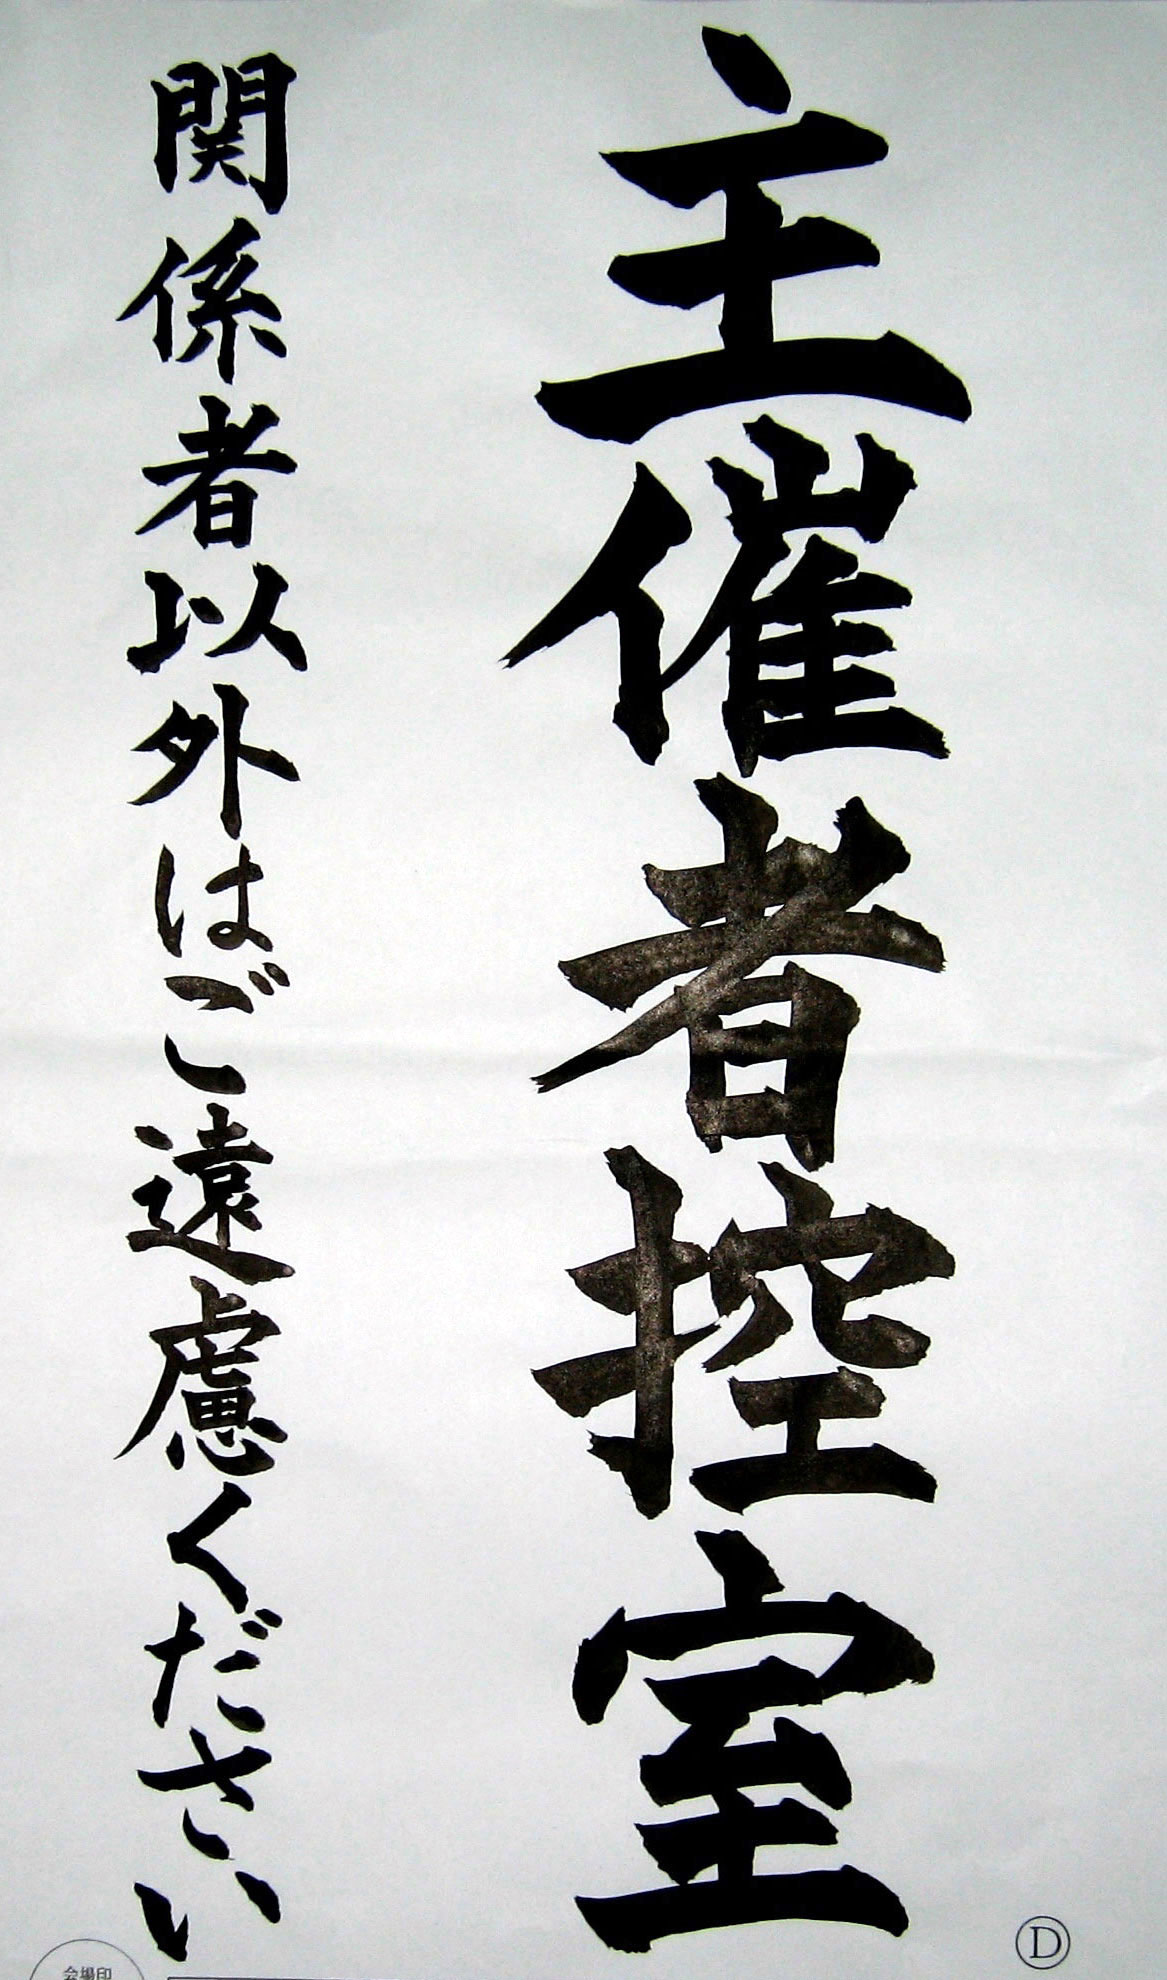 主催者控室
関係者以外はご遠慮ください
Ⓓ
会場印